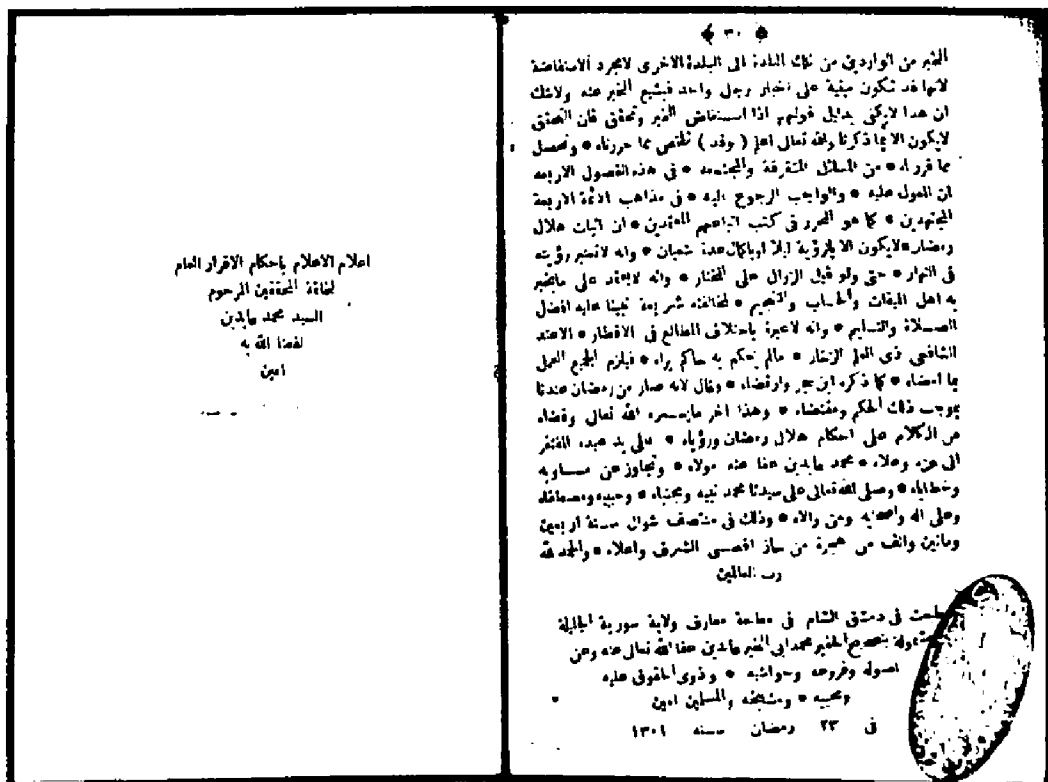 ﴿ ٣٠ ﴾
الخبر من الواردين من تلك البلدة الى البلدة الاخرى لامجرد الاستفاضة
لانها قد تكون مبنية على اخبار رجل واحد فيشيع الخبر عنه ولاشك
ان هذا لايكفى بدليل قولهم اذا استفاض الخبر وتحقق فان التحقق
لايكون الا بما ذكرنا والله تعالى اعلم ( وقد ) تلخص مما حررناه * وتحصل
مما قررناه * من المسائل المتفرقة والمجتمعه * فى هذه الفصول الاربعه
ان المعول عليه * والواجب الرجوع اليه * فى مذاهب الائمة الاربعة
المجتهدين * كما هو المحرر فى كتب اتباعهم المعتمدين * ان اثبات هلال
رمضان * لايكون الا بالرؤية ليلا او باكمال عدة شعبان * وانه لاتعتبر رؤيته
فى النهار * حتى ولو قبل الزوال على المختار * وانه لايعتمد على مايخبر
به اهل الميقات والحساب والتنجيم * لمخالفته شريعة نبينا عليه افضل
الصلاة والتسليم * وانه لاعبرة باختلاف المطالع فى الاقطار * الاعند
الشافعى ذى العلم الزخار * مالم يحكم به حاكم يراه * فيلزم الجميع العمل
بما امضاه * كما ذكره ابن حجر وارتضاه * وقال لانه صار من رمضان عندنا
بموجب ذلك الحكم ومقتضاه * وهذا اخر مايسره الله تعالى وقضاه
من الكلام على احكام هلال رمضان ورؤياه * على يد عبده المفتقر
الى عزه وعلاه * محمد عابدين عفا عنه مولاه * وتجاوز عن مساويه
وخطاياه * وصلى الله تعالى على سيدنا محمد نبيه ومجتباه * وحبيبه ومصطفاه
وعلى اله واصحابه ومن والاه * وذلك فى منتصف شوال سنة اربعين
ومائتين والف من هجرة من حاز اقصى الشرف واعلاه * والحمد لله
رب العالمين
طبعت فى دمشق الشام فى مطبعة معارف ولاية سورية الجليلة
بتصحيح الفقير محمد ابى الخير عابدين عفا الله تعالى عنه وعن
اصوله وفروعه وحواشيه * وذوى الحقوق عليه
ومحبيه * ومشايخه والمسلمين امين
فى ٢٣ رمضان سنه ١٣٠١
اعلام الاعلام باحكام الاقرار العام
لخاتمة المحققين المرحوم
السيد محمد عابدين
نفعنا الله به
امين